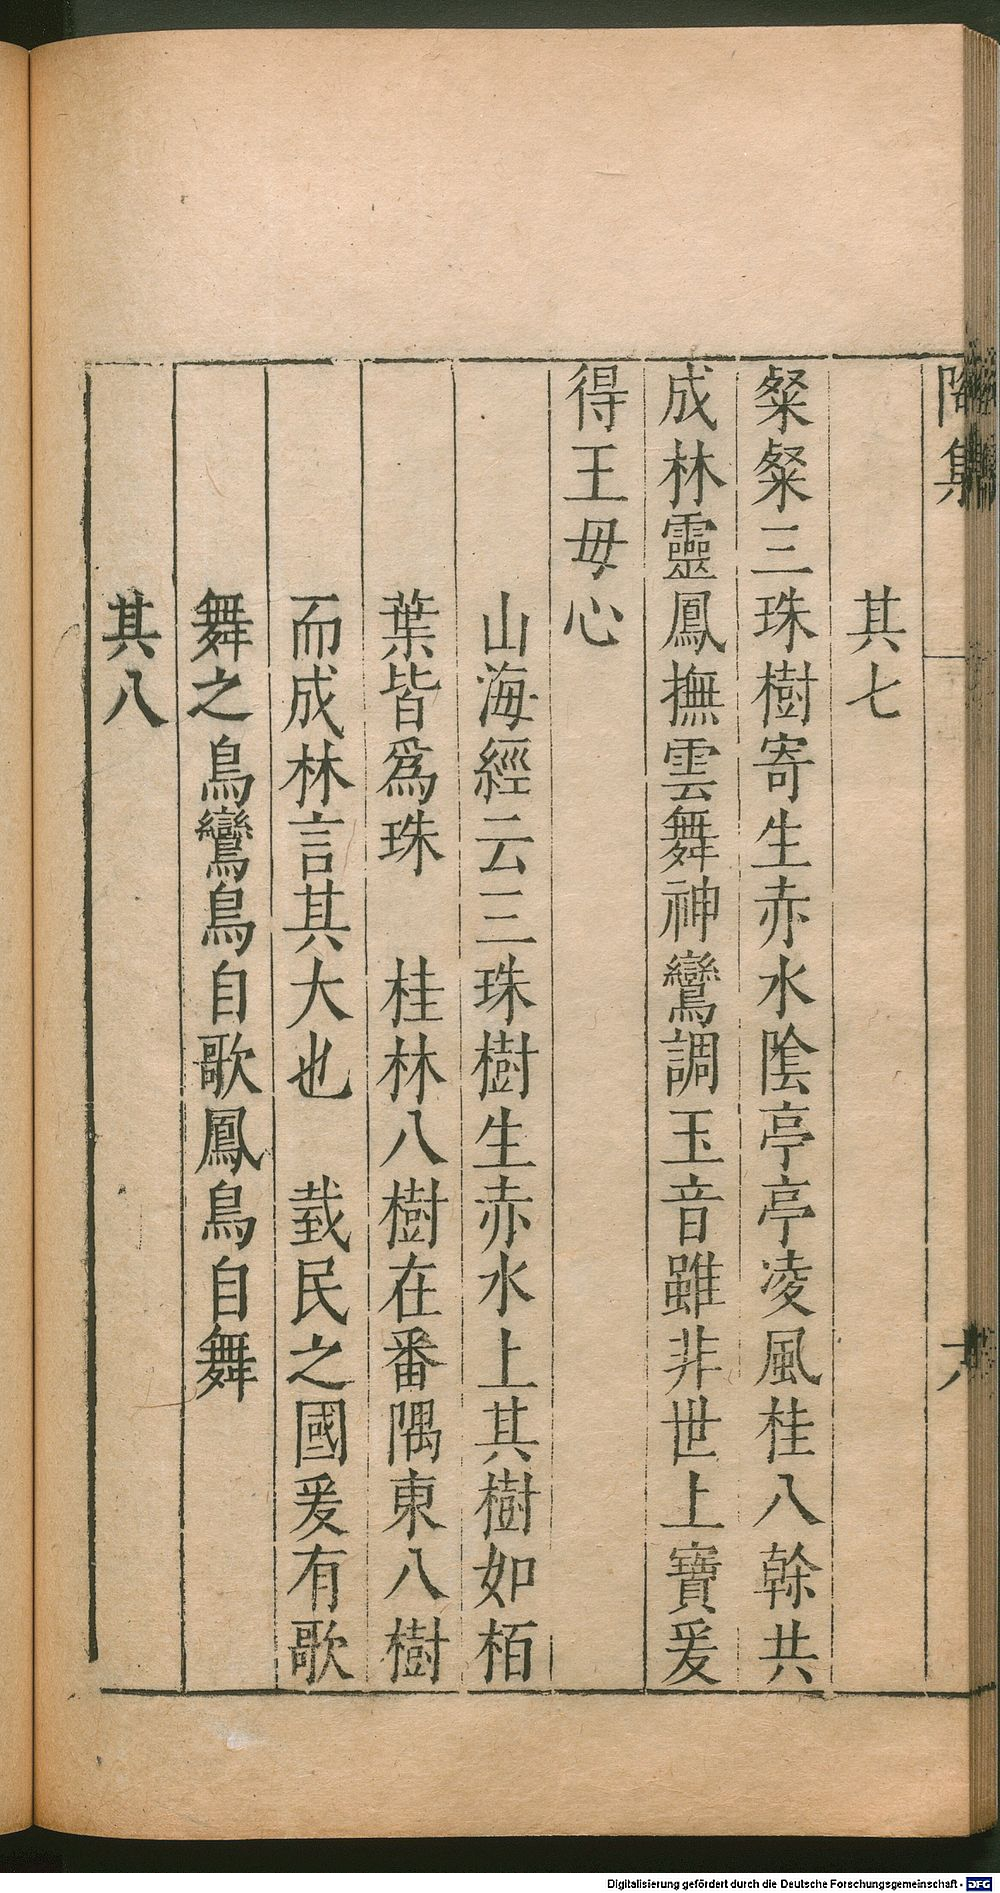 陶集
六
其七
粲粲三珠樹寄生赤水陰亭亭凌風桂八榦共
成林靈鳳撫雲舞神鸞調玉音雖非世上寶爰
得王毋心
山海經云三珠樹生赤水上其樹如栢
葉皆爲珠　桂林八樹在番隅東八樹
而成林言其大也　臷民之國爰有歌
舞之鳥鸞鳥自歌鳳鳥自舞
其八
Digitalisierung gefördert durch die Deutsche Forschungsgemeinschaft - DFG